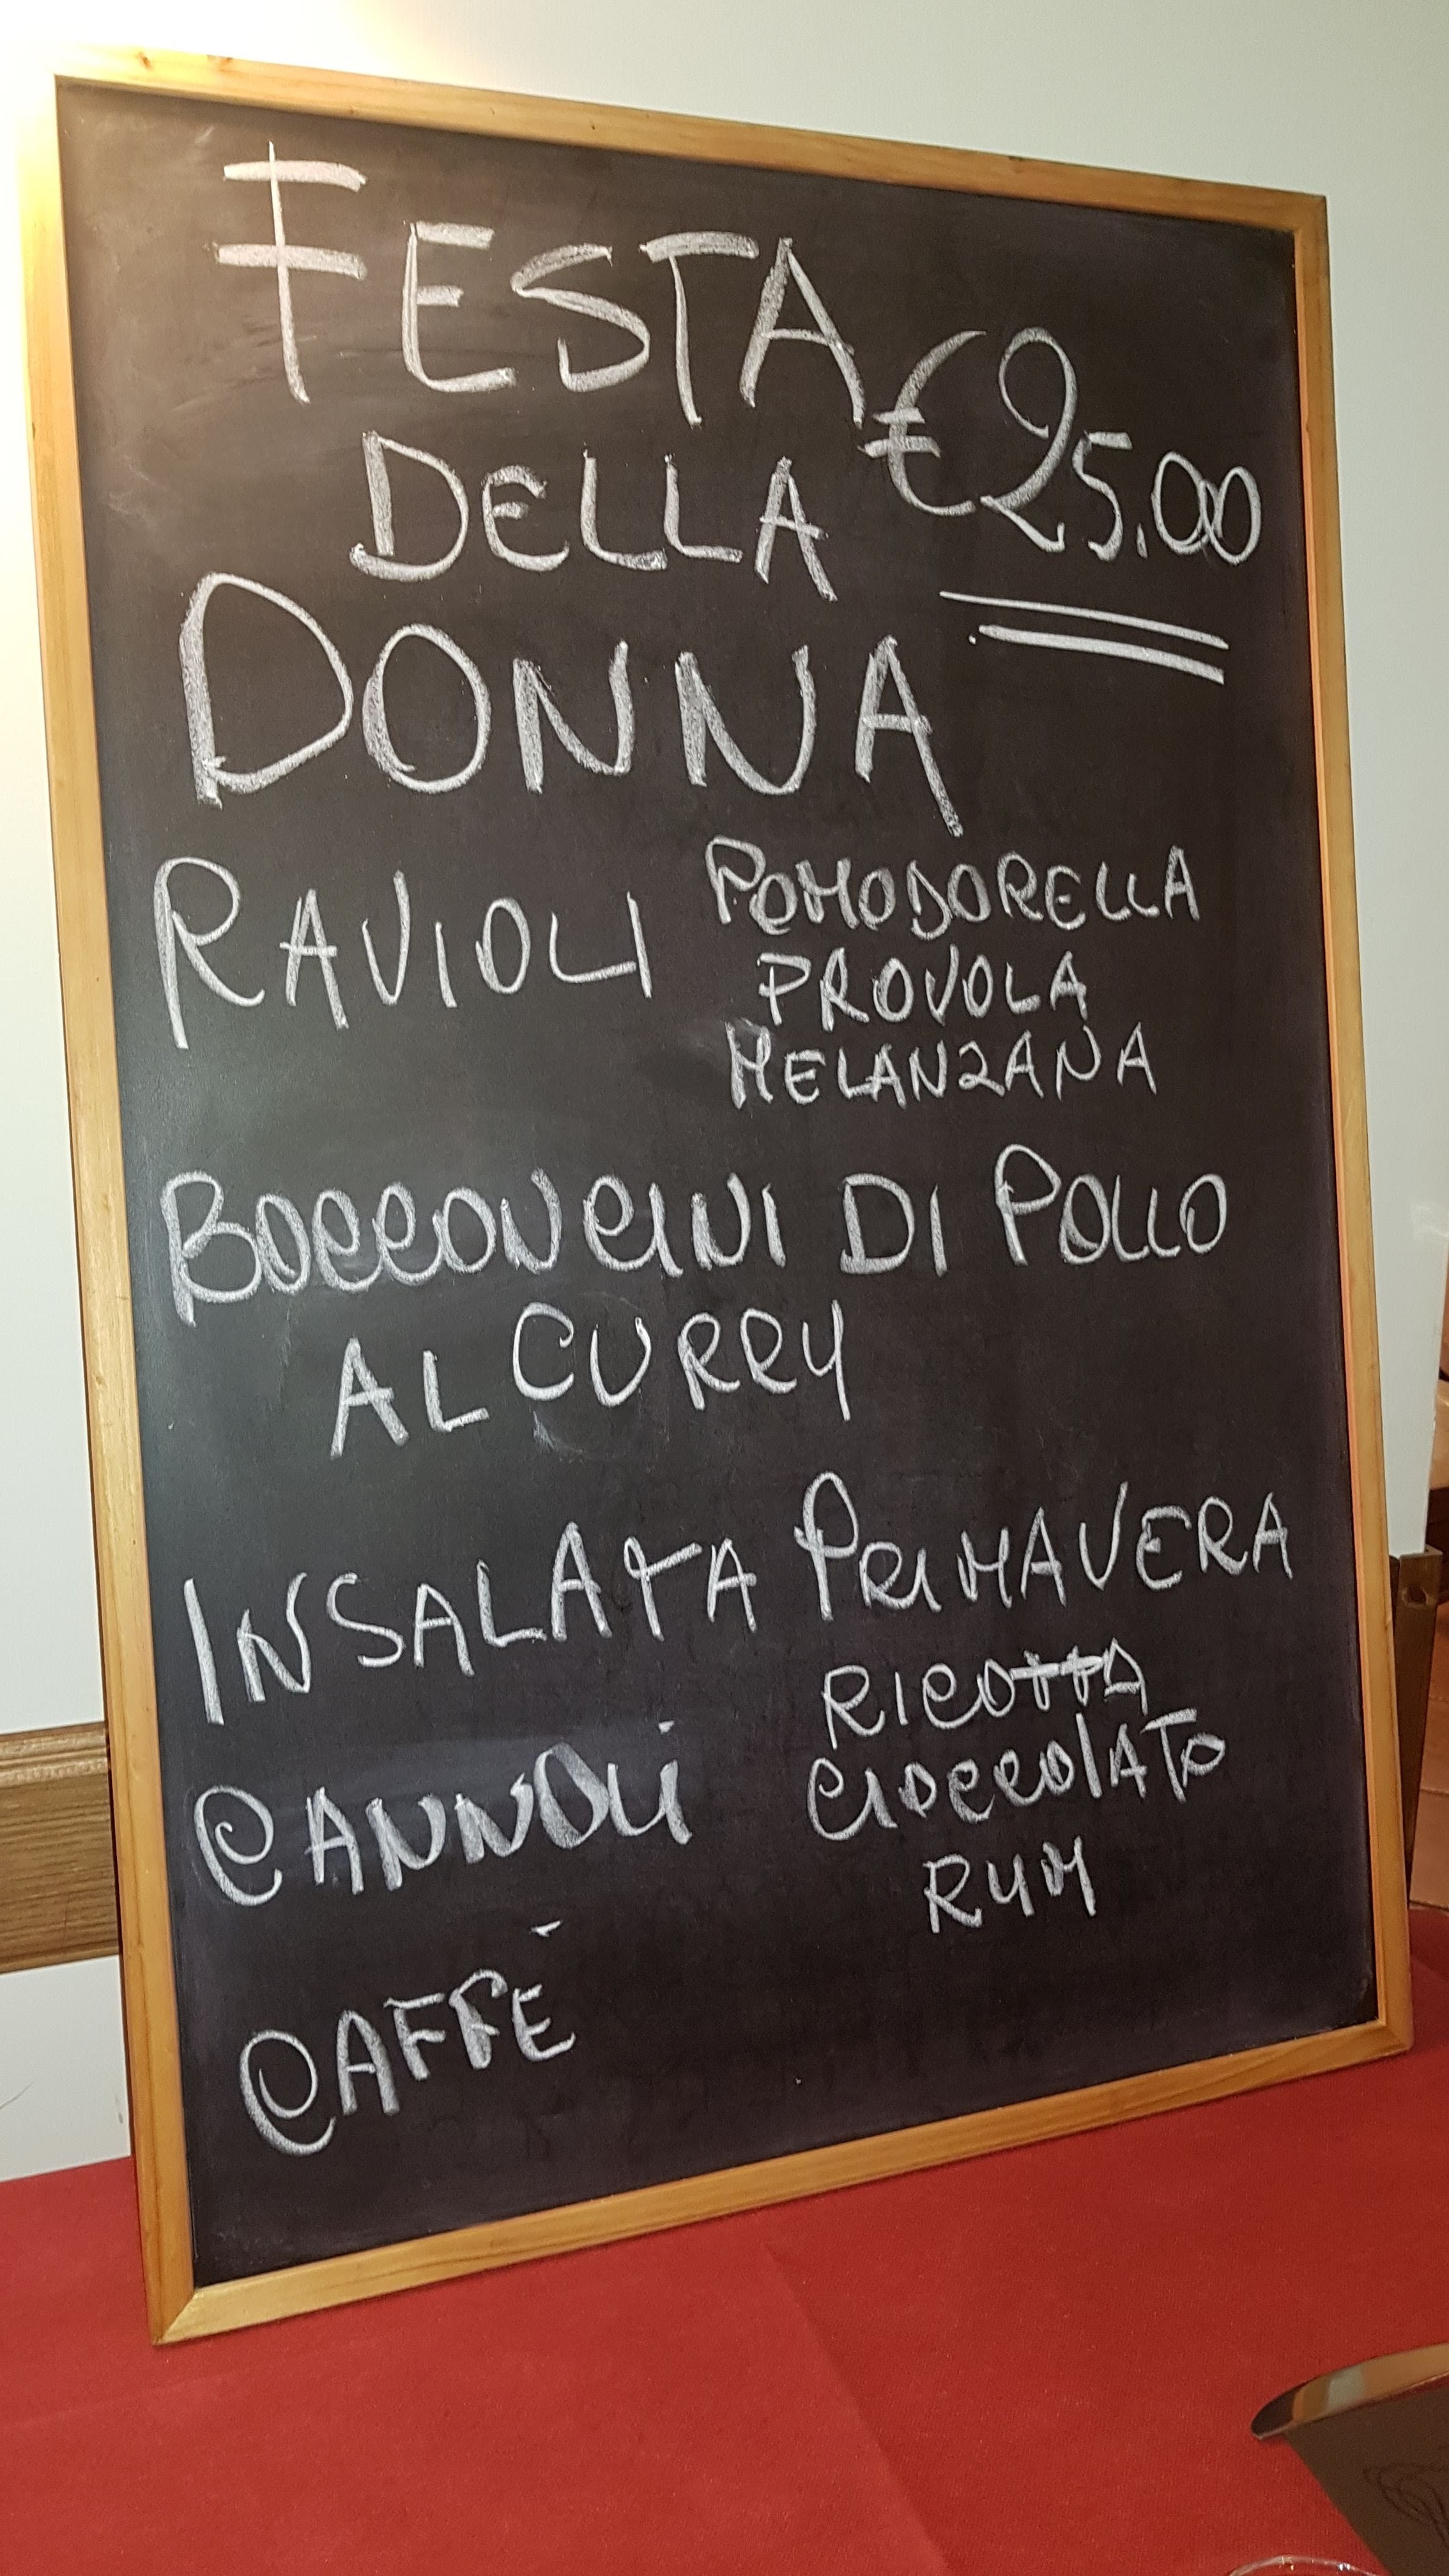 FESTA
DELLA
€25.00
DONNA
RAVIOLI
POMODORELLA
PROVOLA
MELANZANA
BOCCONCINI DI POLLO
AL CURRY
INSALATA PRIMAVERA
CANNOLI
RICOTTA
CIOCCOLATO
RUM
CAFFÈ